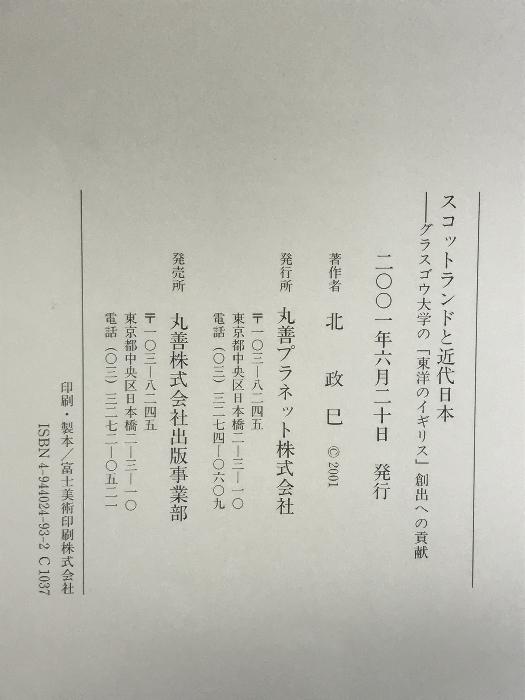 スコットランドと近代日本
――グラスゴウ大学の「東洋のイギリス」創出への貢献
二〇〇一年六月二十日　発行
著作者　北　政巳　©2001
発行所　丸善プラネット株式会社
〒一〇三―八二四五
東京都中央区日本橋二―三―一〇
電話（〇三）三二七四―〇六〇九
発売所　丸善株式会社出版事業部
〒一〇三―八二四五
東京都中央区日本橋二―三―一〇
電話（〇三）三二七二―〇五二一
印刷・製本／富士美術印刷株式会社
ISBN 4-944024-93-2 C 1037